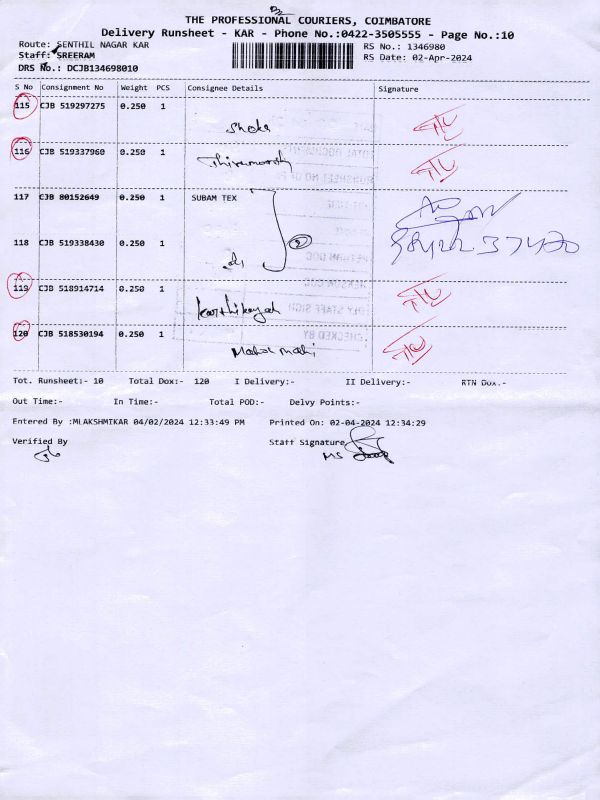 THE PROFESSIONAL COURIERS, COIMBATORE
Delivery Runsheet - KAR - Phone No.:0422-3505555 - Page No.:10
Route: SENTHIL NAGAR KAR
RS No.: 1346980
Staff: SREERAM
RS Date: 02-Apr-2024
DRS No.: DCJB134698010
S No Consignment No Weight PCS Consignee Details Signature
115 CJB 519297275 0.250 1
116 CJB 519337960 0.250 1
117 CJB 80152649 0.250 1 SUBAM TEX
118 CJB 519338430 0.250 1
2
119 CJB 518914714 0.250 1
Karthikeyah
120 CJB 518530194 0.250 1
Tot. Runsheet:- 10 Total Dox:- 120 I Delivery:- II Delivery:- RTN Dox.-
Out Time:- In Time:- Total POD:- Delvy Points:-
Entered By :MLAKSHMIKAR 04/02/2024 12:33:49 PM Printed On: 02-04-2024 12:34:29
Verified By Staff Signature
MS